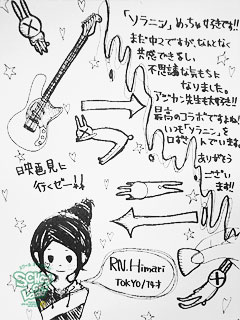 「ソラニン」めっちゃ好きです!!
まだ中2ですが、なんとなく
共感できるし、
不思議な気もちに
なりました。
アジカン先生も大好き!!
最高のコラボですよね!
いつも「ソラニン」を
口ずさんでいます。
ありがとう
ございます!
映画見に
行くぜー!!
RN. Himari
TOKYO/14才